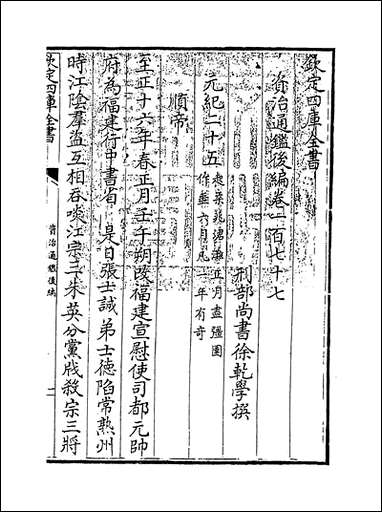 欽定四庫全書
資治通鑑後編卷一百七十七
刑部尚書徐乾學撰
元紀二十五
起柔兆涒灘正月盡彊圉
作噩六月凡一年有奇
順帝
至正十六年春正月壬午朔改福建宣慰使司都元帥
府為福建行中書省 是日張士誠弟士德陷常熟州
時江陰羣盗互相吞啖江宗三朱英分黨戕殺宗三將
欽定四庫全書
資治通鑑後編
一